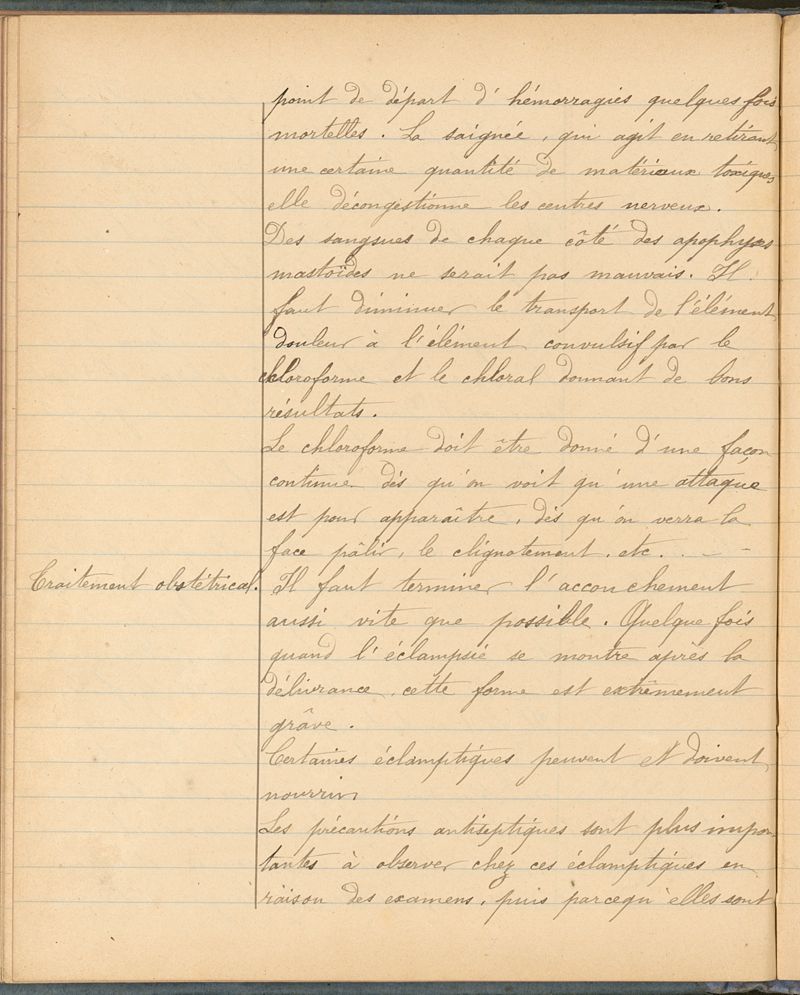 point de départ d'hémorragies quelques fois
mortelles. La saignée, qui agit en retirant
une certaine quantité de matériaux toxiques
elle décongestionne les centres nerveux.
Des sangsues de chaque côté des apophyses
mastoïdes ne serait pas mauvais. Il
faut diminuer le transport de l'élément
douleur à l'élément convulsif par le
chloroforme et le chloral donnant de bons
résultats.
Le chloroforme doit être donné d'une façon
continue dès qu'on voit qu'une attaque
est pour apparaître, dès qu'on verra la
face pâlir, le clignotement, etc. . - -
Traitement obstétrical. Il faut terminer l'accouchement
aussi vite que possible. Quelque fois
quand l'éclampsie se montre après la
délivrance, cette forme est extrêmement
grâve.
Certaines éclamptiques peuvent et doivent
nourrir
Les précautions antiseptiques sont plus impor-
tantes à observer chez ces éclamptiques en
raison des examens, puis parcequ'elles sont